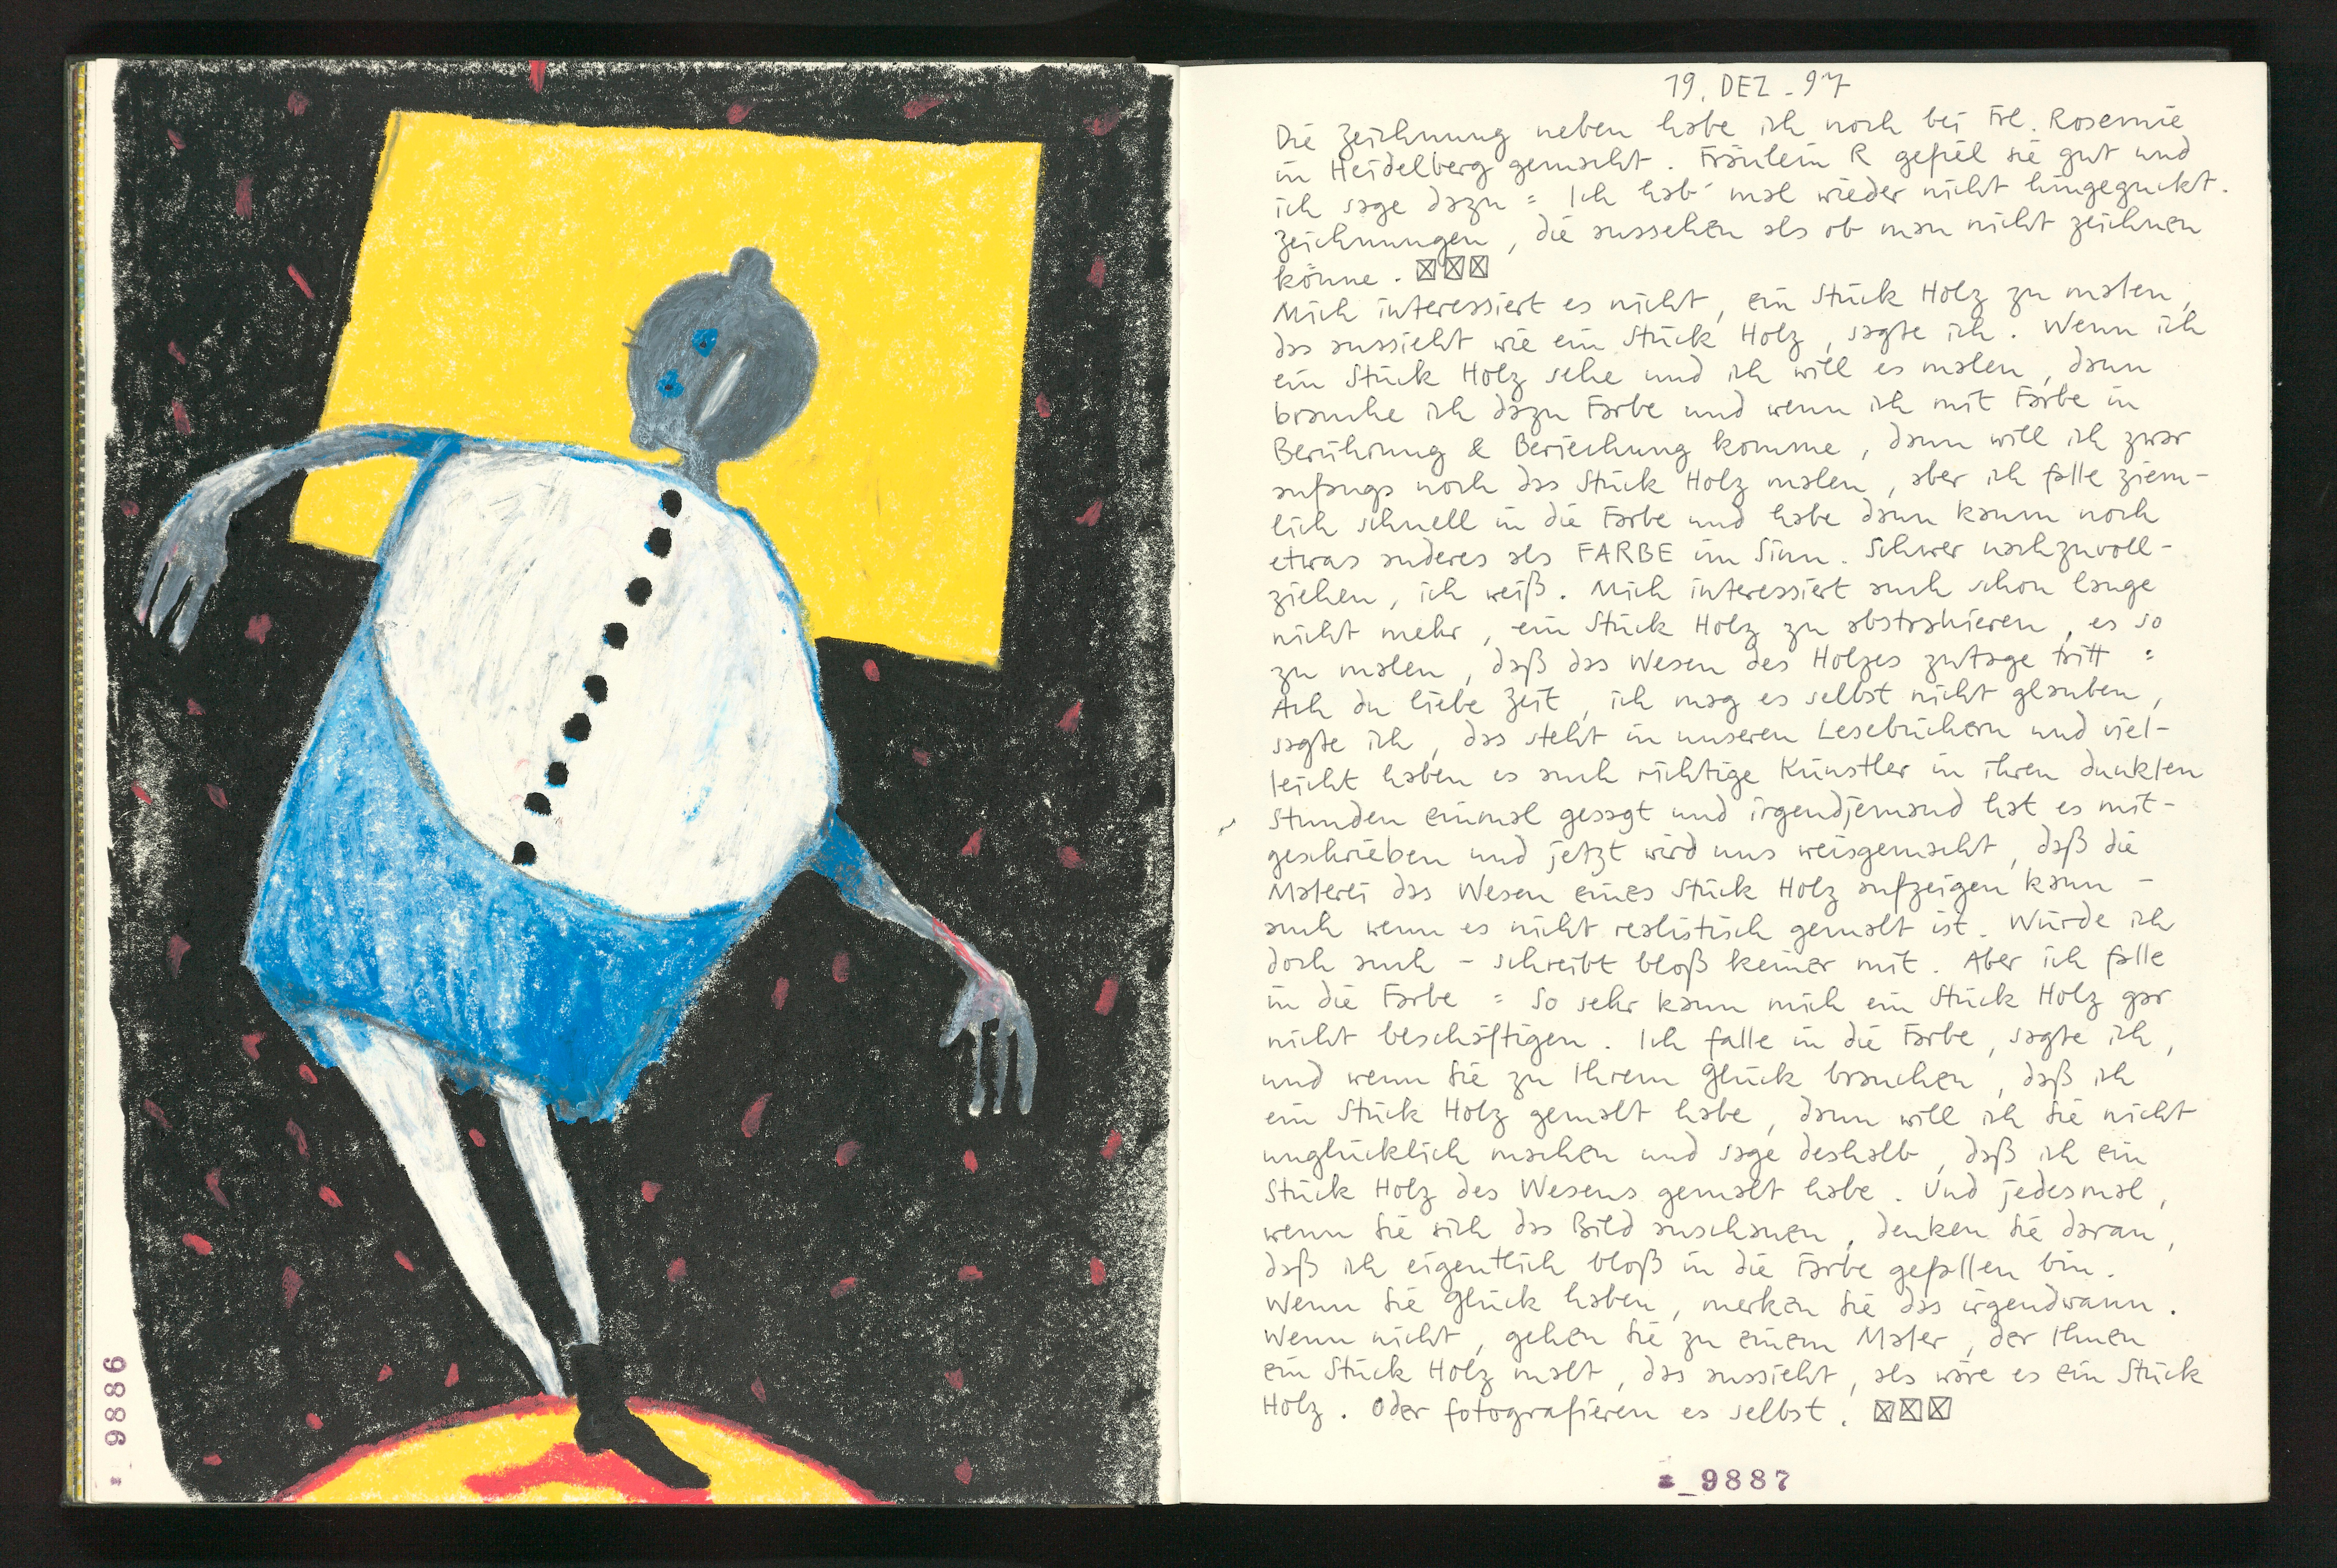 19. DEZ - 97
Die Zeichnung neben habe ich noch bei Frl. Rosemie
in Heidelberg gemacht. Fräulein R gefiel sie gut und
ich sage dazu : Ich hab' mal wieder nicht hingeguckt.
Zeichnungen, die aussehen als ob man nicht zeichnen
könne. ☒☒☒
Mich interessiert es nicht, ein Stück Holz zu malen,
das aussieht wie ein Stück Holz, sagte ich. Wenn ich
ein Stück Holz sehe und ich will es malen, dann
brauche ich dazu Farbe und wenn ich mit Farbe in
Berührung & Beriechung komme, dann will ich zwar
anfangs noch das Stück Holz malen, aber ich falle ziem-
lich schnell in die Farbe und habe dann kaum noch
etwas anderes als FARBE im Sinn. Schwer nachzuvoll-
ziehen, ich weiß. Mich interessiert auch schon lange
nicht mehr, ein Stück Holz zu abstrahieren, es so
zu malen, daß das Wesen des Holzes zutage tritt :
Ach du liebe Zeit, ich mag es selbst nicht glauben,
sagte ich, das steht in unseren Lesebüchern und viel-
leicht haben es auch richtige Künstler in ihren dunklen
Stunden einmal gesagt und irgendjemand hat es mit-
geschrieben und jetzt wird uns weisgemacht, daß die
Malerei das Wesen eines Stück Holz aufzeigen kann -
auch wenn es nicht realistisch gemalt ist. Würde ich
doch auch - schreibt bloß keiner mit. Aber ich falle
in die Farbe : So sehr kann mich ein Stück Holz gar
nicht beschäftigen. Ich falle in die Farbe, sagte ich,
und wenn Sie zu Ihrem Glück brauchen, daß ich
ein Stück Holz gemalt habe, dann will ich Sie nicht
unglücklich machen und sage deshalb, daß ich ein
Stück Holz des Wesens gemalt habe. Und jedesmal,
wenn Sie sich das Bild anschauen, denken Sie daran,
daß ich eigentlich bloß in die Farbe gefallen bin.
Wenn Sie Glück haben, merken Sie das irgendwann.
Wenn nicht, gehen Sie zu einem Maler, der Ihnen
ein Stück Holz malt, das aussieht, als wäre es ein Stück
Holz. Oder fotografieren es selbst. ☒☒☒
9886
9887